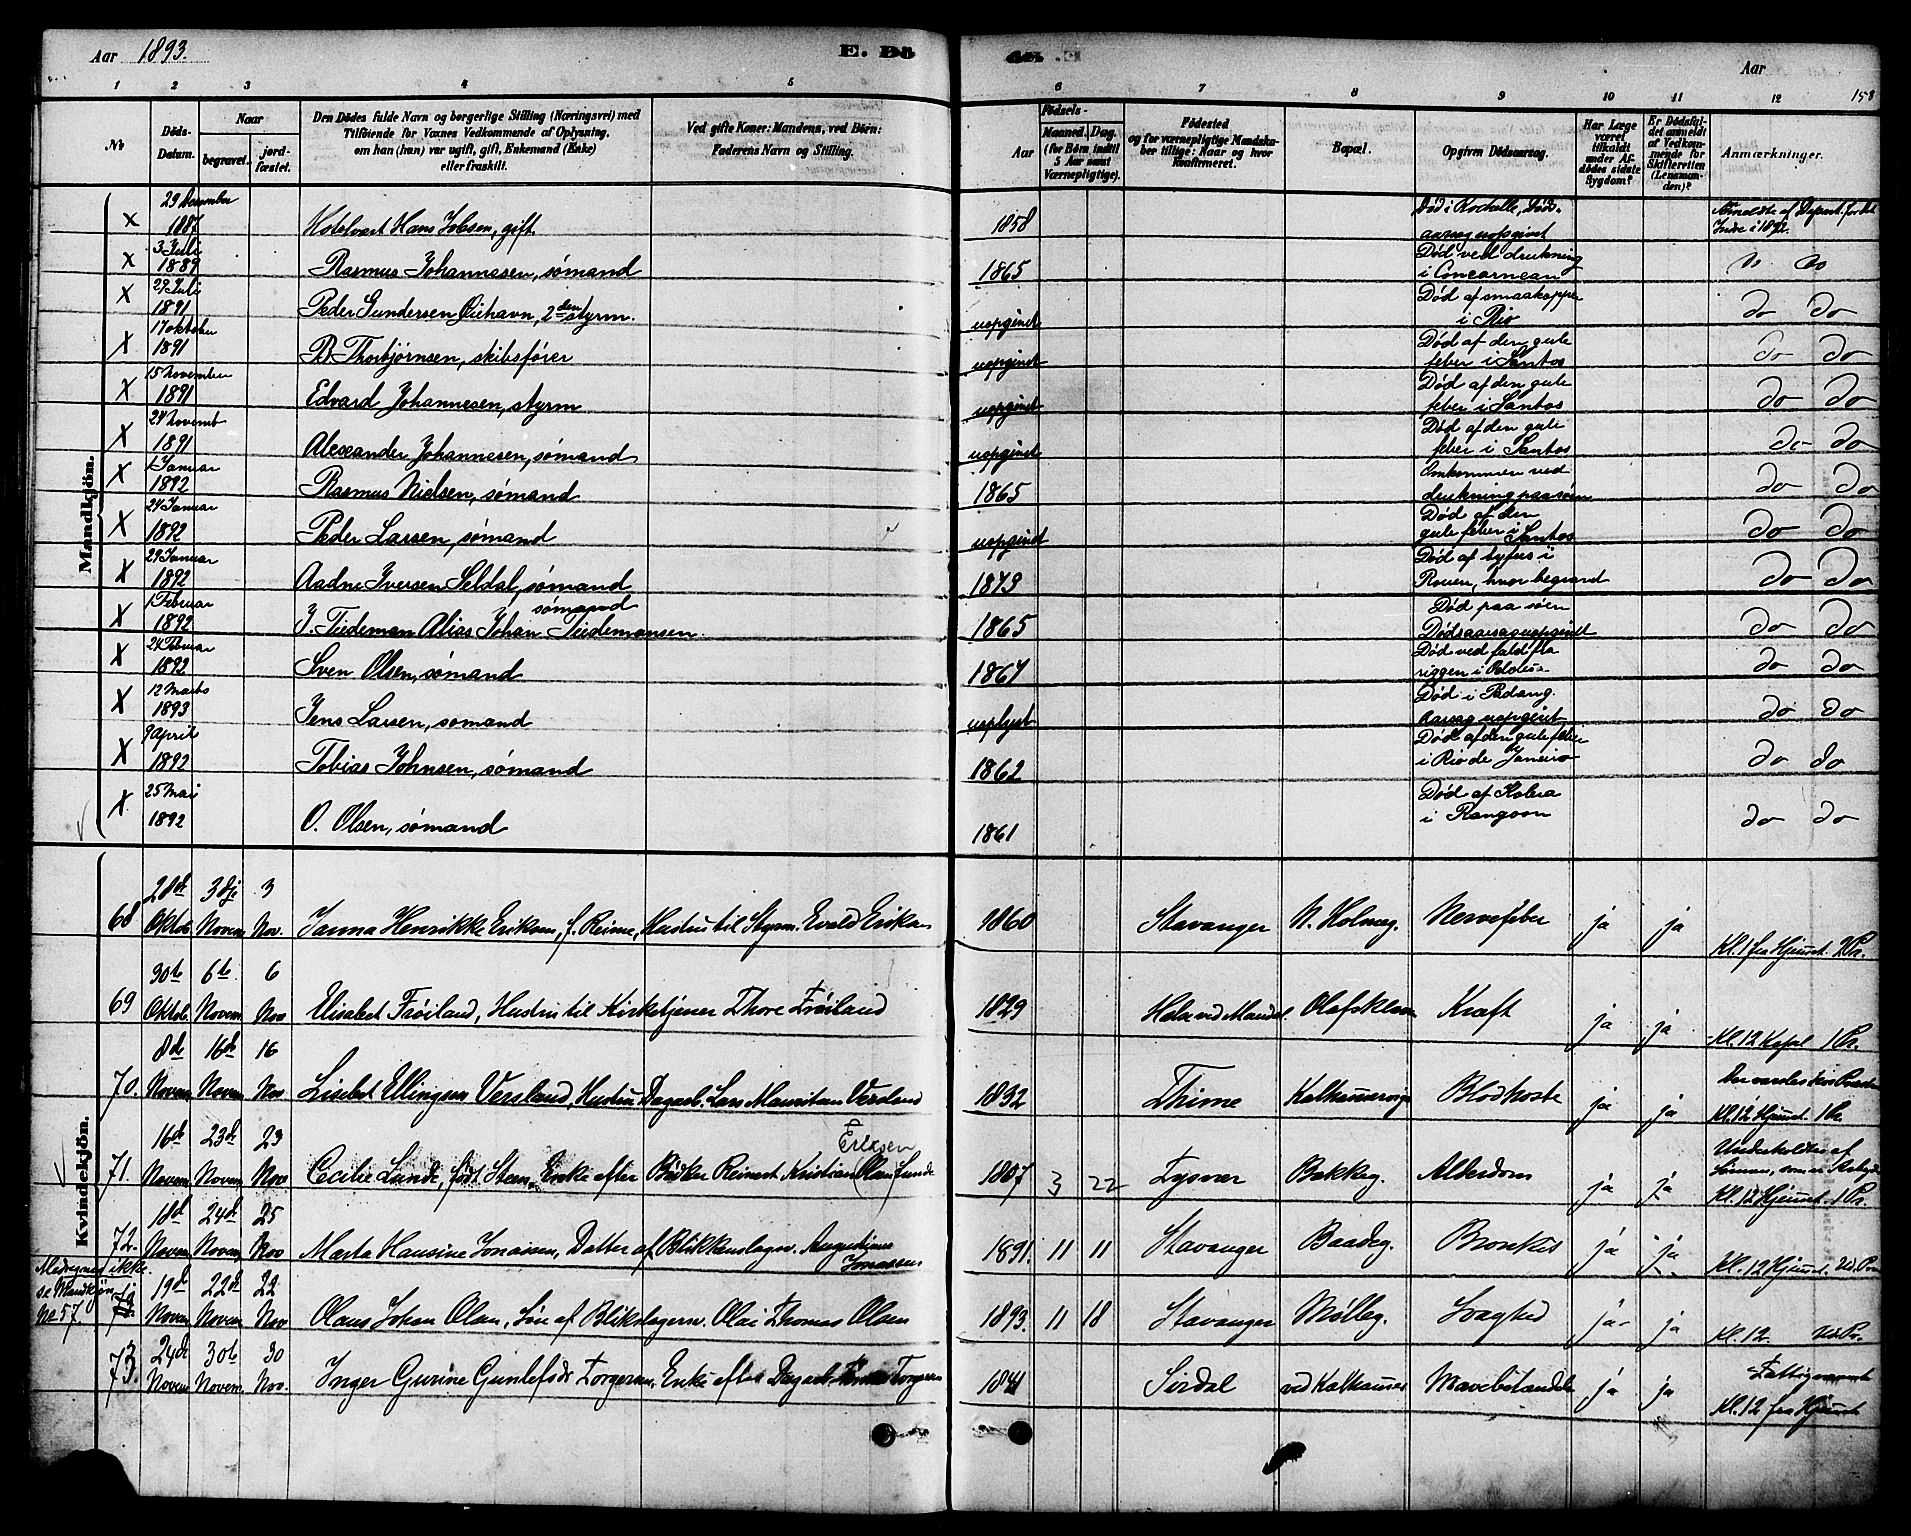 Aar 1893. E. Dö
de. Aar 158
1 2 3 4 5 6 7 8 9 10 11 12
No Döds-Datum. Naar begravet. jordfæstet. Den Dödes fulde Navn og borgerlige Stilling (Næringsvei) med Tilföiende for Voxnes Vedkommende af Oplysning, om han (hun) var ugift, gift, Enkemand (Enke) eller fraskilt. Ved gifte Koner: Mandens, ved Börn: Faderens Navn og Stilling. Födsels- Aar Maaned. Dag. (for Börn indtil 5 Aar samt Værnepligtige). Födested og for værnepligtige Mandskaber tillige: Naar og hvor Konfirmeret. Bopæl. Opgiven Dödsaarsag. Har Læge været tilkaldt under Afdödes sidste Sygdom? Er Dödsfaldet anmeldt af Vedkommende for Skifteretten (Lensmanden)? Anmærkninger.
Mandkjön.
x 29 Desember 1887 Hotelvært Hans Jobsen, gift 1858 Død i Rochelle, Dødsaarsag uopgivet Anmeldte af Depart. for det Indre i 1892.
x 3 Juli 1889 Rasmus Johannesen, sømand 1865 Død ved drukning i Concarnean do do
x 29 Juli 1891 Peder Gundersen Øiehavn, 2den styrm. uopgivet Død af smaakopper i Rio do do
x 17 oktober 1891 B. Thorbjørnsen, skibsfører uopgivet Død af den gule feber i Santos do do
x 15 november 1891 Edvard Johannesen, styrm uopgivet Død af den gule feber i Santos do do
x 24 novemb 1891 Alexander Johannesen, sømand uopgivet Død af den gule feber i Santos do do
x 1 Januar 1892 Rasmus Nielsen, sømand 1865 Omkommen ved drukning paa søen do do
x 24 Januar 1892 Peder Larsen, sømand uopgivet Død af den gule feber i Santos do do
x 29 Januar 1892 Aadne Iversen Seldal, sømand 1873 Død af tyfus i Rouen, hvor begravd do do
x 1 Februar 1892 J. Tiedeman Alias Johan Tiedemansen. sømand 1865 Død paa søen Dødsaarsag uopgivet do do
x 24 Februar 1892 Sven Olsen, sømand 1867 Død ved fald fra riggen i do do
x 12 Marts 1893 Jens Larsen, sømand uoplyst Død i Padang. Aarsag uopgivet do do
x 9 April 1892 Tobias Johnsen, sømand 1862 Død af den gule feber i Rio de Janeiro do do
x 25 Mai 1892 O. Olsen, sømand 1861 Død af Kolera i Rangoon do do
Kvindekjön.
68 28de Oktob 3dje Novem 3 Nov. Janna Henrikke Eriksen, f. Reime, Hustru til Styrm. Evald Eriksen 1860 Stavanger N. Holmeg. Nervefeber ja ja Kl. 1 fra Hjemmet. 2 Pr.
69 30te Oktob. 6te Novem 6 Nov Elisabet Frøiland, Hustru til Kirketjener Thore Frøiland 1829 Holm ved Mandal Olafskleven Kræft ja ja Kl. 12 Kapel 1 Pr.
70. 8de Novem 16de Novem 16 Nov Lisebet Ellingsen Versland, Hustru Dagarb. Lars Mauritsen Versland 1832 Thime Kalhammervig Blodhoste ja ja Kl. 12 Hjemmet. 1 Pr.
71. 16de Novem 23de Novem 23 Nov Cecilie Lunde, født Steen, Enke efter Bødker Reinert Kristian (Olai) Lunde Eriksen 1807 3 22 Tysvær Bakkeg. Alderdom ja ja Underholdtes af Sønner, Kl. 12 Hjemmet. 1 Pr.
72. 18de Novem 24de Novem 25 Nov Marta Hansine Jonassen, Datter af Blikkenslager. Augustinus Jonassen 1891. 11 11 Stavanger Baadeg. Bronkit ja ja Kl. 12 Hjemmet. Ud. Pr.
Medregnes ikke. se Mandkjøn No 57. 73 19de Novem 22de Novem 22 Nov Olaus Johan Olsen, Søn af Blikslagersv. Olai Thomas Olsen 1893. 11 18 Stavanger Mølleg. Svaghed ja ja Kl. 12. Ud. Pr.
73. 24de Novem 30te Novem. 30 Nov. Inger Gurine Gunlefsdr Torgersen, Enke efter Dagarb. Torgersen 1841 Sirdal ved Kalhammer Mavebetændelse ja ja Fattigvæsenet Kl. 12 fra Hjemmet